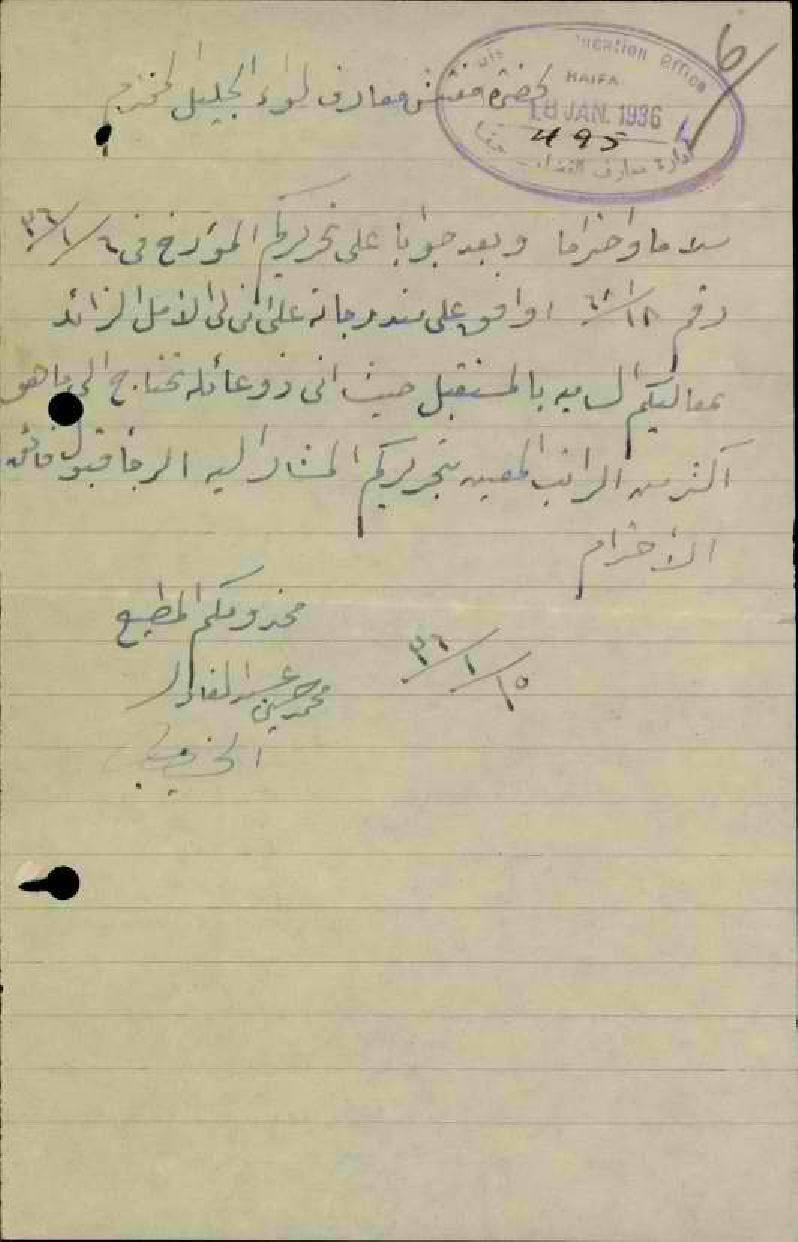 Education Office
HAIFA
18 JAN. 1936
495
ادارة معارف القضاء حيفا
6
لحضرة مفتش معارف لواء الجليل المحترم
سلاما واحتراما وبعد جوابا على تحريركم المؤرخ في ٦/١/٣٦
رقم اوافق على مندرجاته على ان لي الامل الزائد
بمعاليكم الساميه بالمستقبل حيث اني ذو عائله تحتاج الى ما هو
اكثر من الراتب المعين بتحريركم المشار اليه الرجا قبول فائق
الاحترام
مخدومكم المطيع
١٥/١/٣٦
محمد حسين عبد